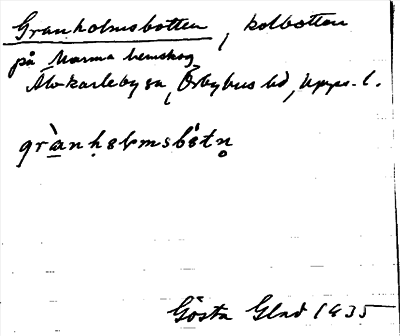 Granholmsbotten, kolbotten
på Marma hemskog
Älvkarleby sn, Örbyhus hd, Upps. l.
grànholmsbótn
Gösta Glad 1935